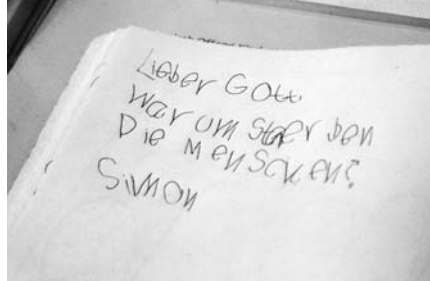 Lieber Gott
Warum steerben
Die Menschen?
Simon